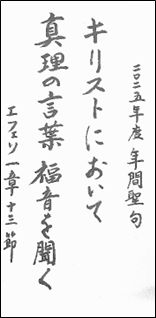 二〇二五年度 年間聖句
キリストにおいて
真理の言葉 福音を聞く
エフェソ一章十三節